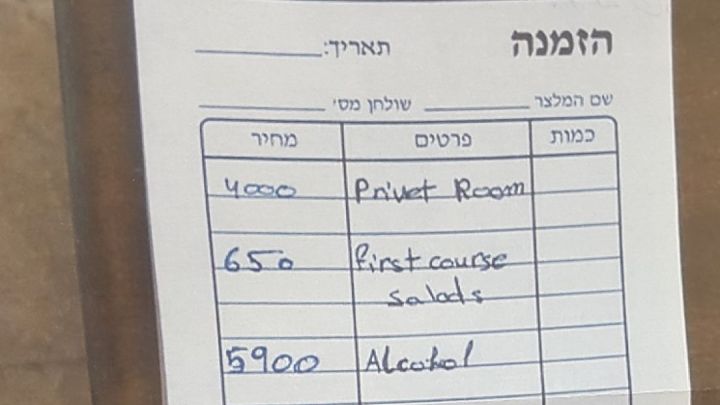 הזמנה
תאריך:
שם המלצר שולחן מס׳
כמות פרטים מחיר
Privet Room 4000
first course 650
salads
Alcohol 5900